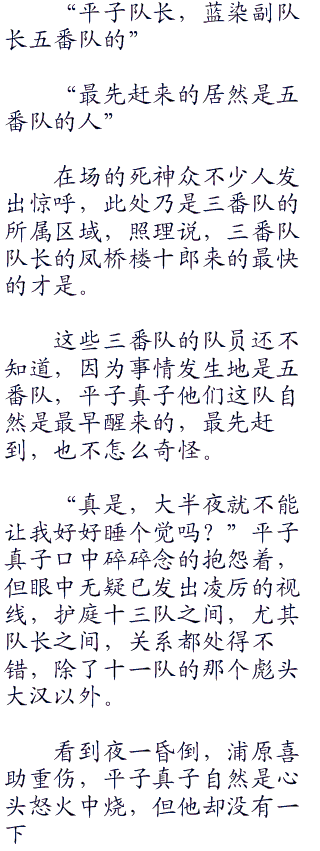 “平子队长，蓝染副队
长五番队的”
“最先赶来的居然是五
番队的人”
在场的死神众不少人发
出惊呼，此处乃是三番队的
所属区域，照理说，三番队
队长的凤桥楼十郎来的最快
的才是。
这些三番队的队员还不
知道，因为事情发生地是五
番队，平子真子他们这队自
然是最早醒来的，最先赶
到，也不怎么奇怪。
“真是，大半夜就不能
让我好好睡个觉吗？”平子
真子口中碎碎念的抱怨着，
但眼中无疑已发出凌厉的视
线，护庭十三队之间，尤其
队长之间，关系都处得不
错，除了十一队的那个彪头
大汉以外。
看到夜一昏倒，浦原喜
助重伤，平子真子自然是心
头怒火中烧，但他却没有一
下